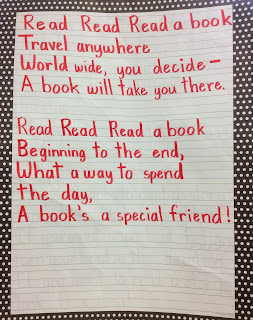 Read Read Read a book
Travel anywhere
World wide, you decide-
A book will take you there.
Read Read Read a book
Beginning to the end,
What a way to spend
the day,
A book's a special friend!